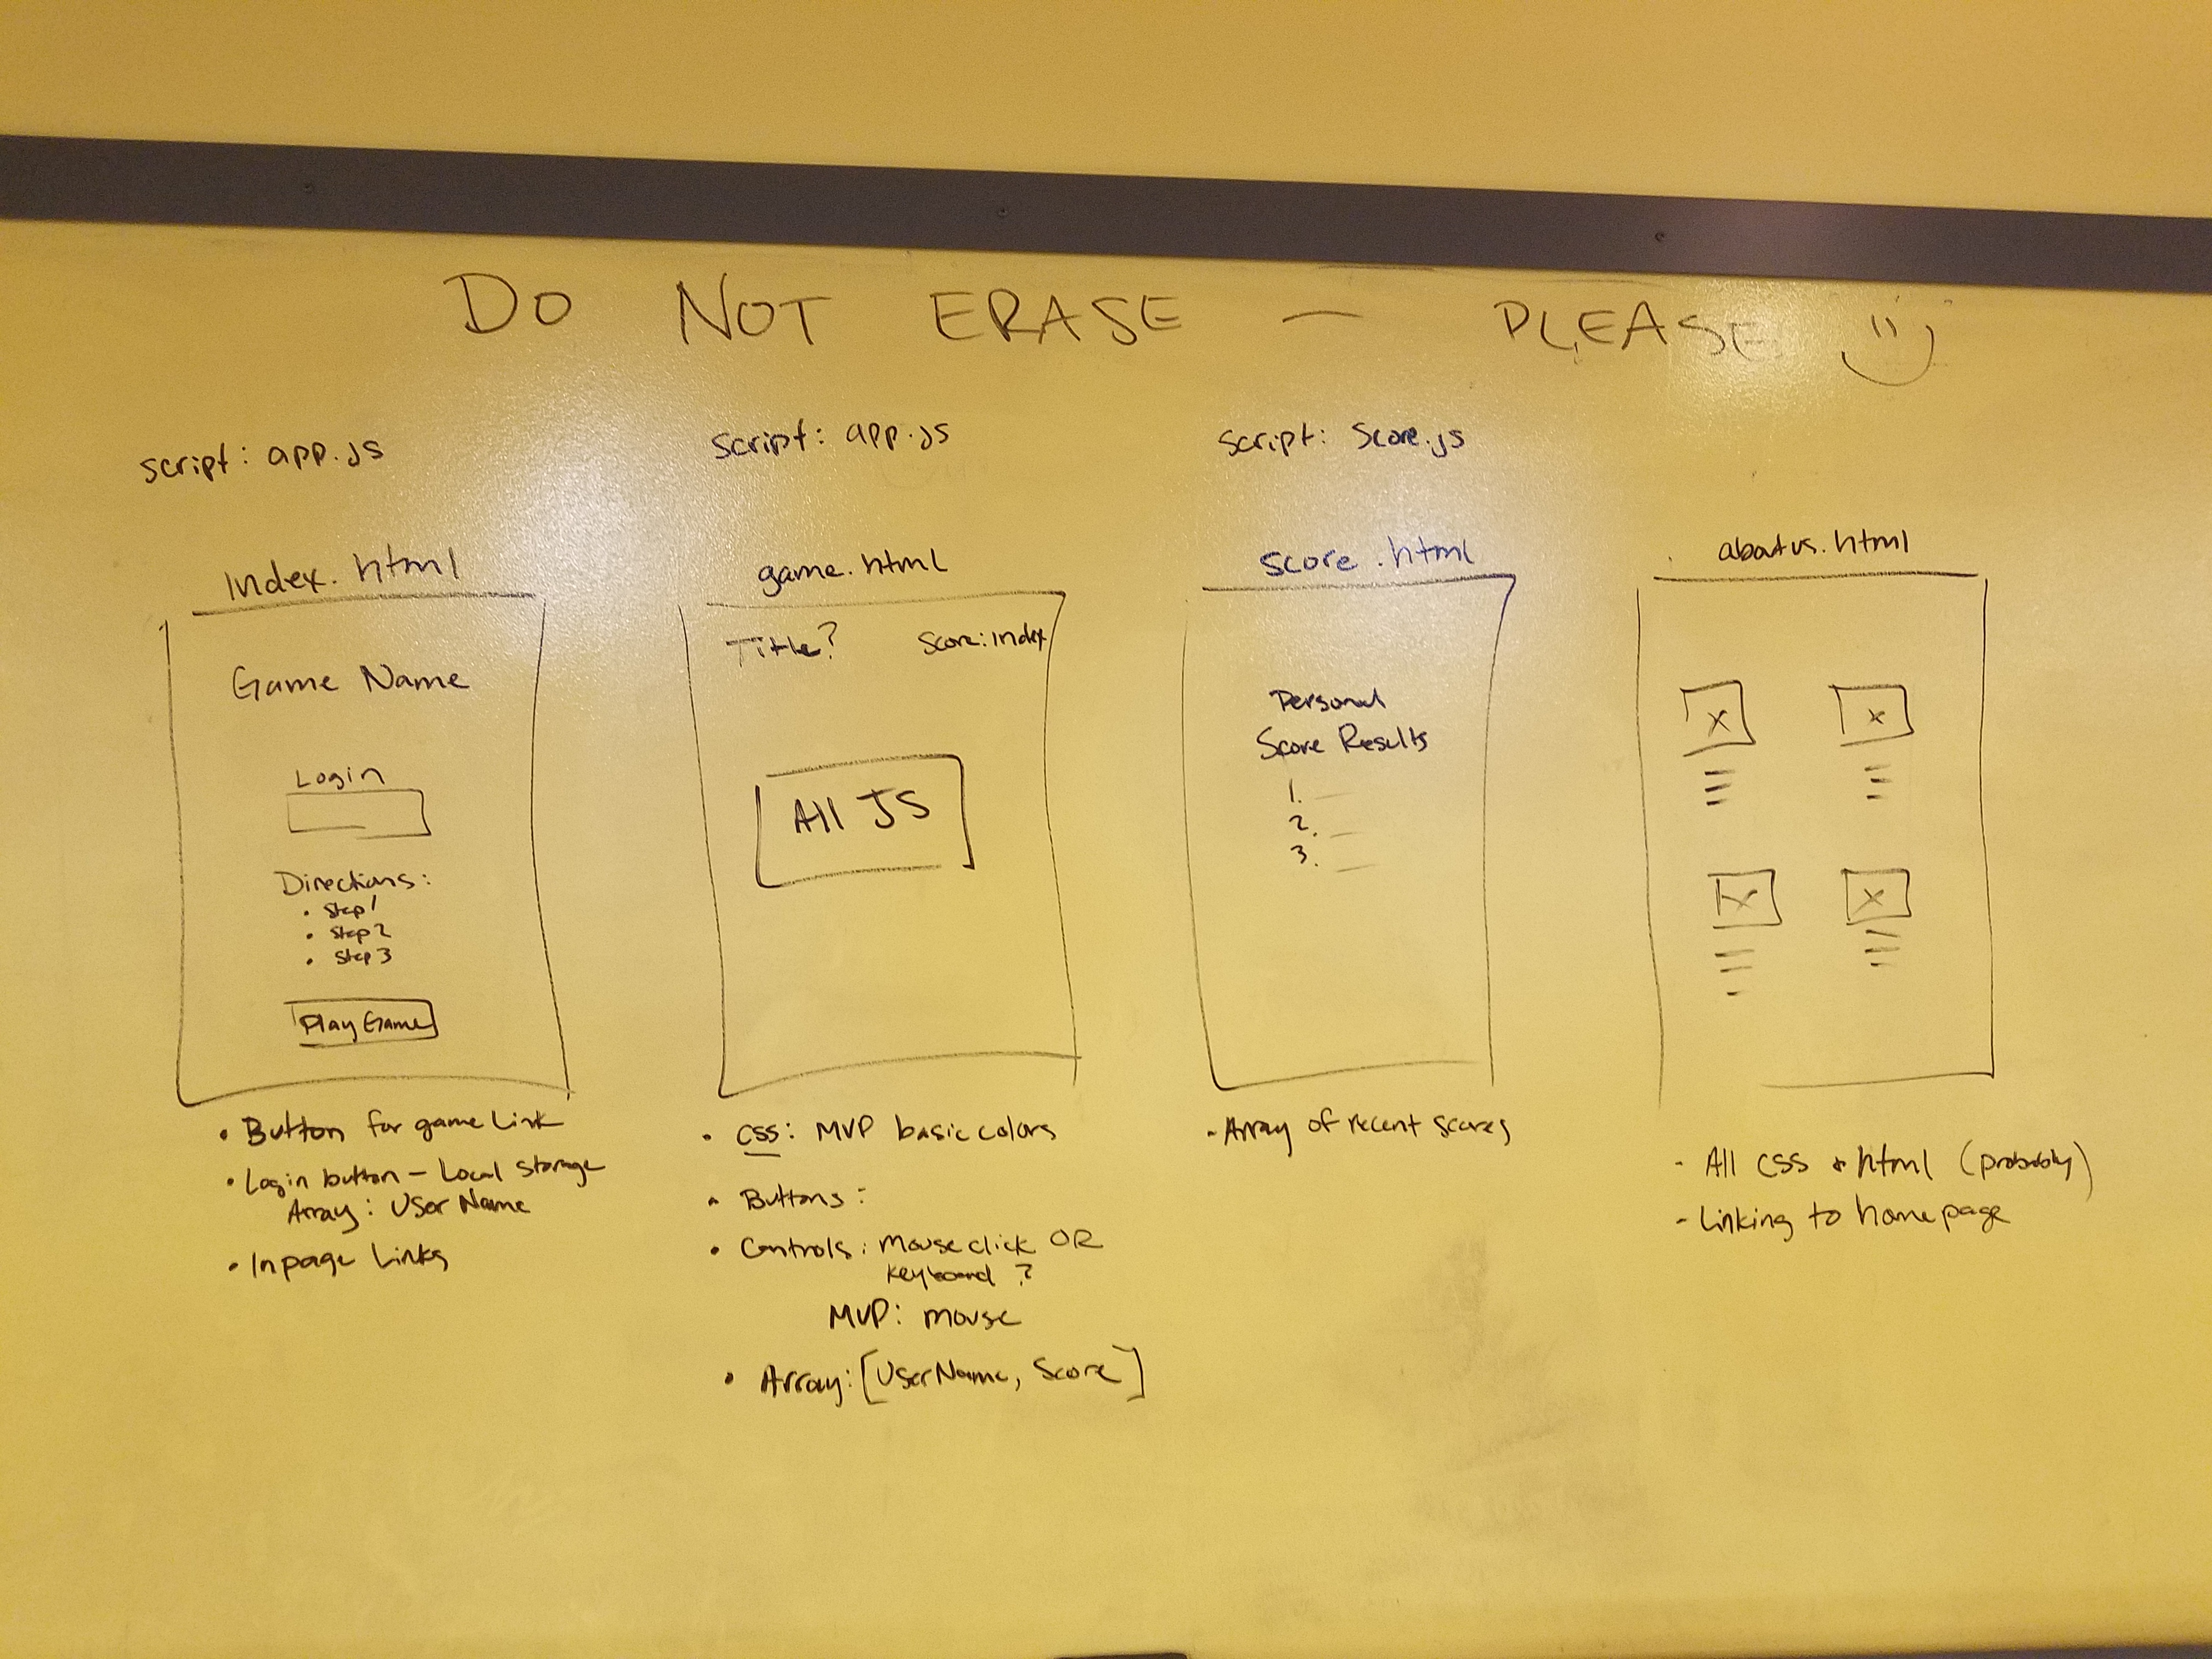 DO NOT ERASE — PLEASE
script: app.js
Index.html
Game Name
Login
Directions:
• Step 1
• Step 2
• Step 3
Play Game
• Button for game Link
• Login button – Local storage
Array: User Name
• In page Links
script: app.js
game.html
Title? Score: index
All JS
• CSS: MVP basic colors
• Buttons:
• Controls: mouse click OR
keyboard ?
MVP: mouse
• Array: [UserName, Score]
script: Score.js
Score.html
Personal
Score Results
1.
2.
3.
- Array of recent scores
aboutus.html
x x
x x
- All CSS + html (probably)
- Linking to homepage